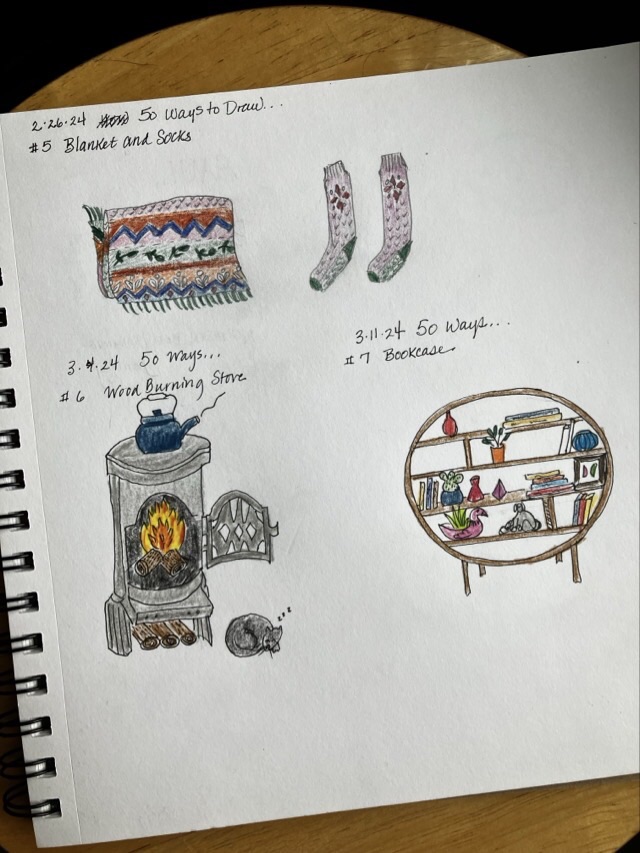 2.26.24 50 Ways to Draw...
#5 Blanket and Socks
3.11.24 50 Ways...
#7 Bookcase
3.4.24 50 Ways...
#6 Wood Burning Stove
z z z